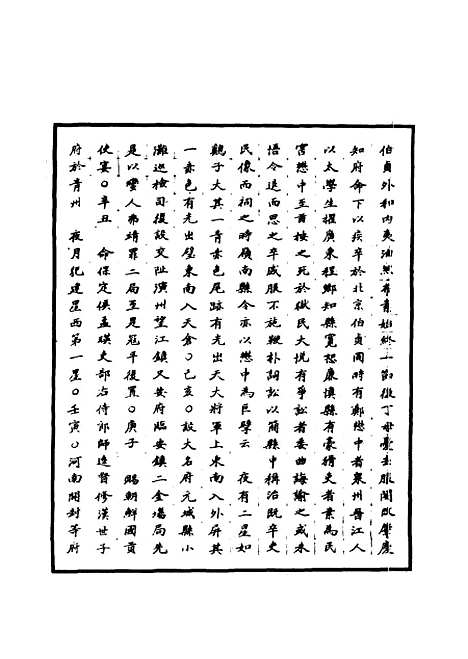 伯貞外和內夷油然君貴始終一節後丁母憂去服闋改肇慶
知府命下以疾卒於北京伯貞同時有鄭懋中者泉州晉江人
以太學生擢廣東程鄉知縣寬恕廉慎縣有豪猾吏者素為民
害懋中至首按之死於獄民大悅有爭訟者委曲誨諭之或未
悟令退而思之卒感服不施鞭朴詞訟以簡縣中稱治既卒吏
民像而祠之時嶺南縣令亦以懋中為巨擘云　夜有二星如
雞子大其一青赤色尾跡有光出天大將軍上東南入外屏其
一赤色有光出壁東南入天倉○己亥○設大名府元城縣小
灘巡檢司復設交阯演州望江鎮又安府臨安鎮二金場局先
是以蠻人弗靖罪二局至是寇平復置○庚子　賜朝鮮國貢
使宴○辛丑　命保定侯孟瑛吏部右侍郎師逵督修漢世子
府於青州　夜月犯建星西第一星○壬寅○河南開封等府